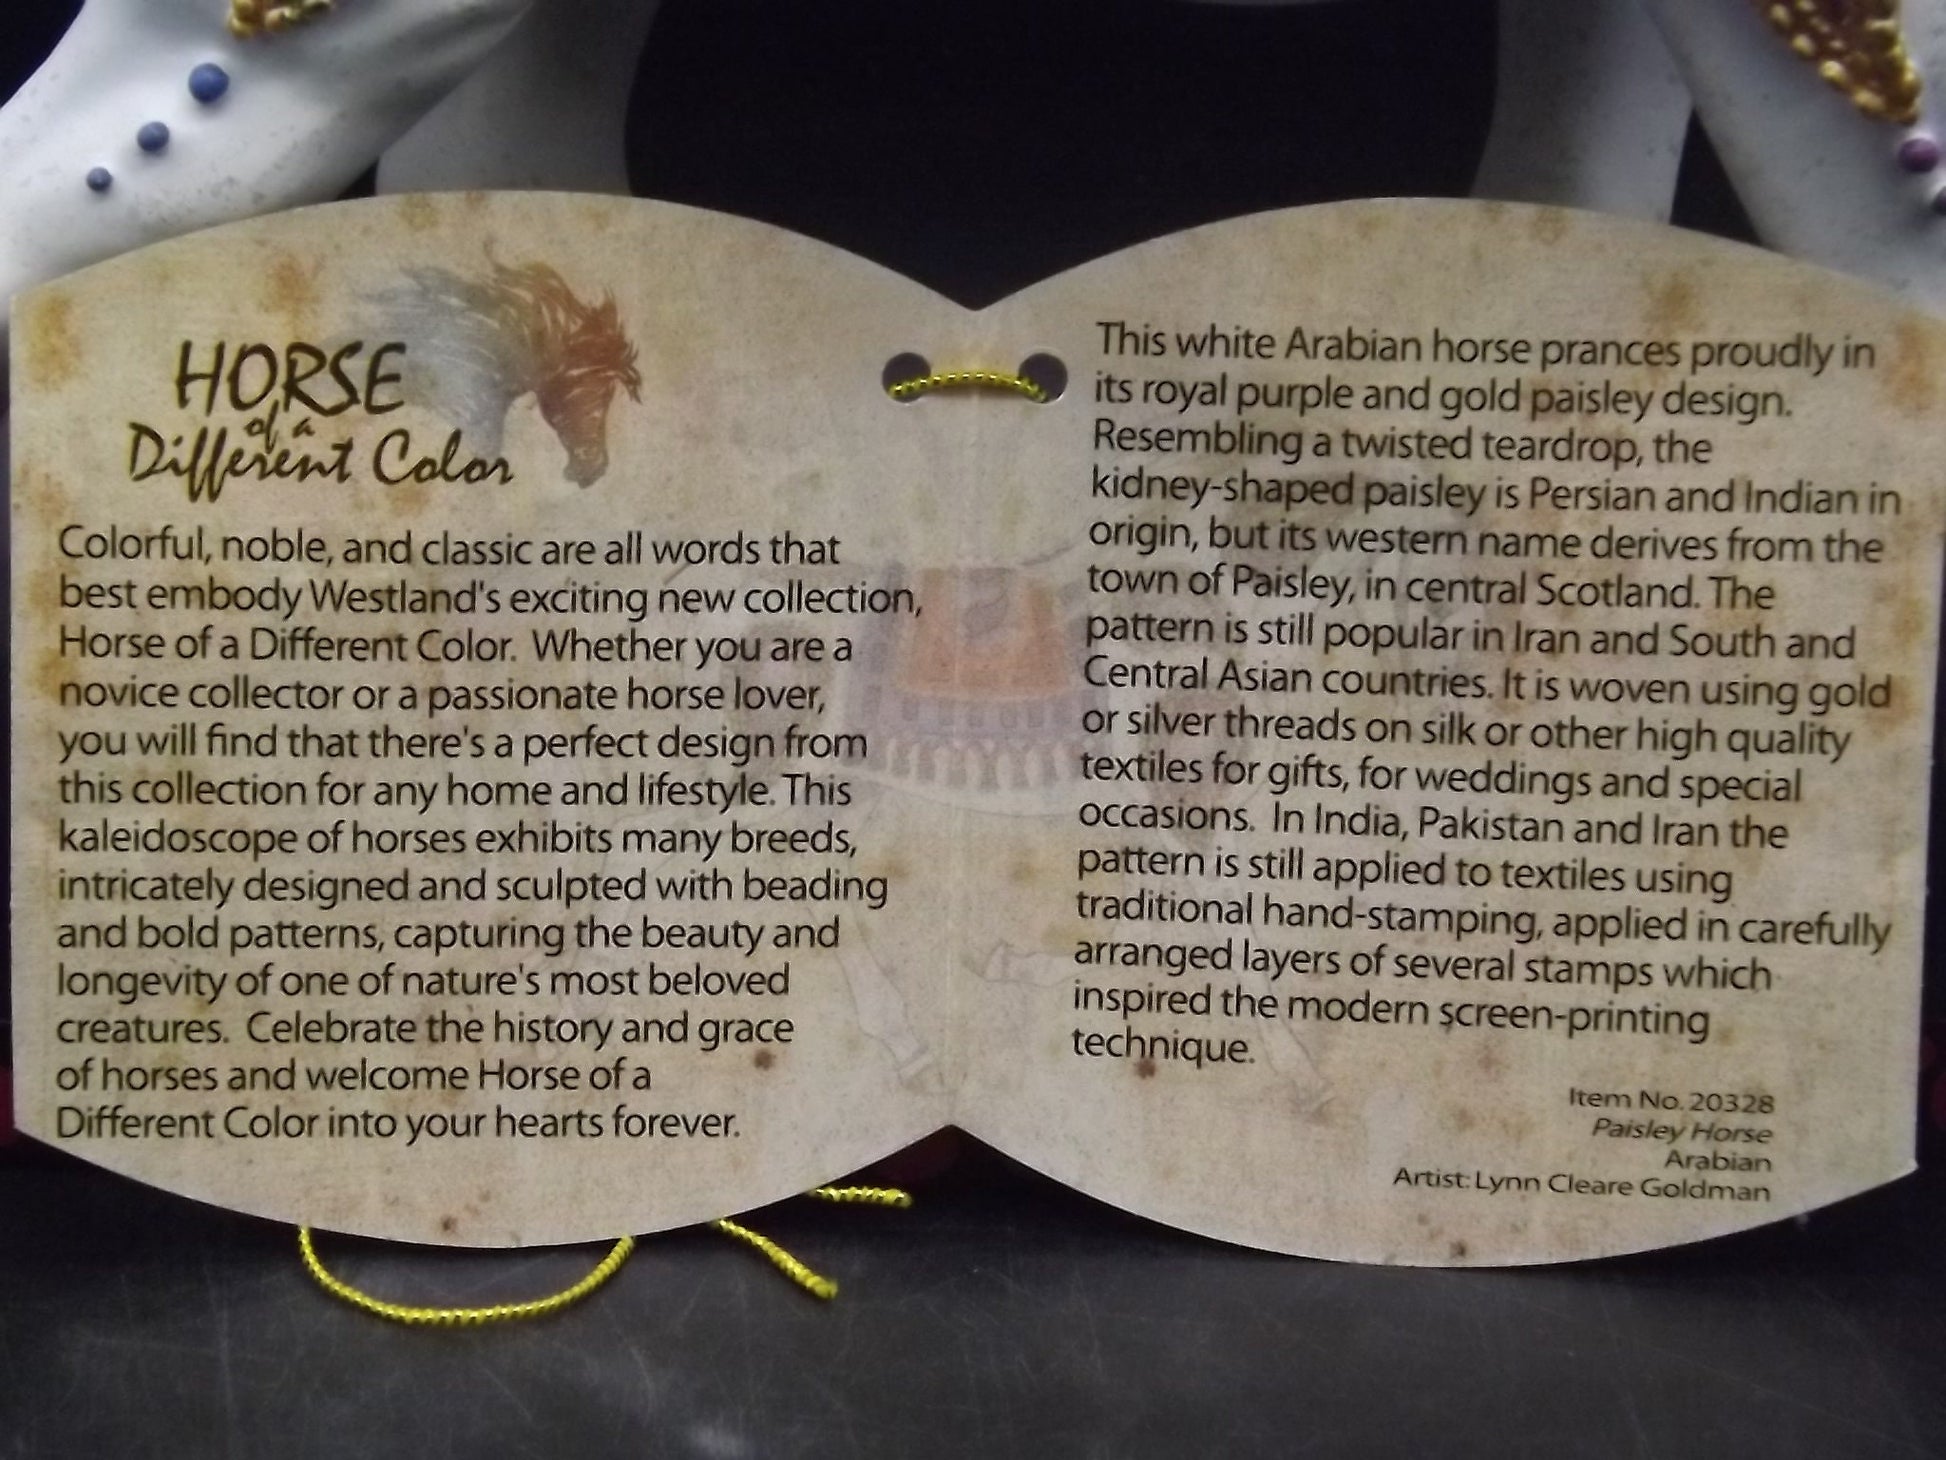 HORSE
of a
Different Color
Colorful, noble, and classic are all words that
best embody Westland's exciting new collection,
Horse of a Different Color. Whether you are a
novice collector or a passionate horse lover,
you will find that there's a perfect design from
this collection for any home and lifestyle. This
kaleidoscope of horses exhibits many breeds,
intricately designed and sculpted with beading
and bold patterns, capturing the beauty and
longevity of one of nature's most beloved
creatures. Celebrate the history and grace
of horses and welcome Horse of a
Different Color into your hearts forever.
This white Arabian horse prances proudly in
its royal purple and gold paisley design.
Resembling a twisted teardrop, the
kidney-shaped paisley is Persian and Indian in
origin, but its western name derives from the
town of Paisley, in central Scotland. The
pattern is still popular in Iran and South and
Central Asian countries. It is woven using gold
or silver threads on silk or other high quality
textiles for gifts, for weddings and special
occasions. In India, Pakistan and Iran the
pattern is still applied to textiles using
traditional hand-stamping, applied in carefully
arranged layers of several stamps which
inspired the modern screen-printing
technique.
Item No. 20328
Paisley Horse
Arabian
Artist: Lynn Cleare Goldman